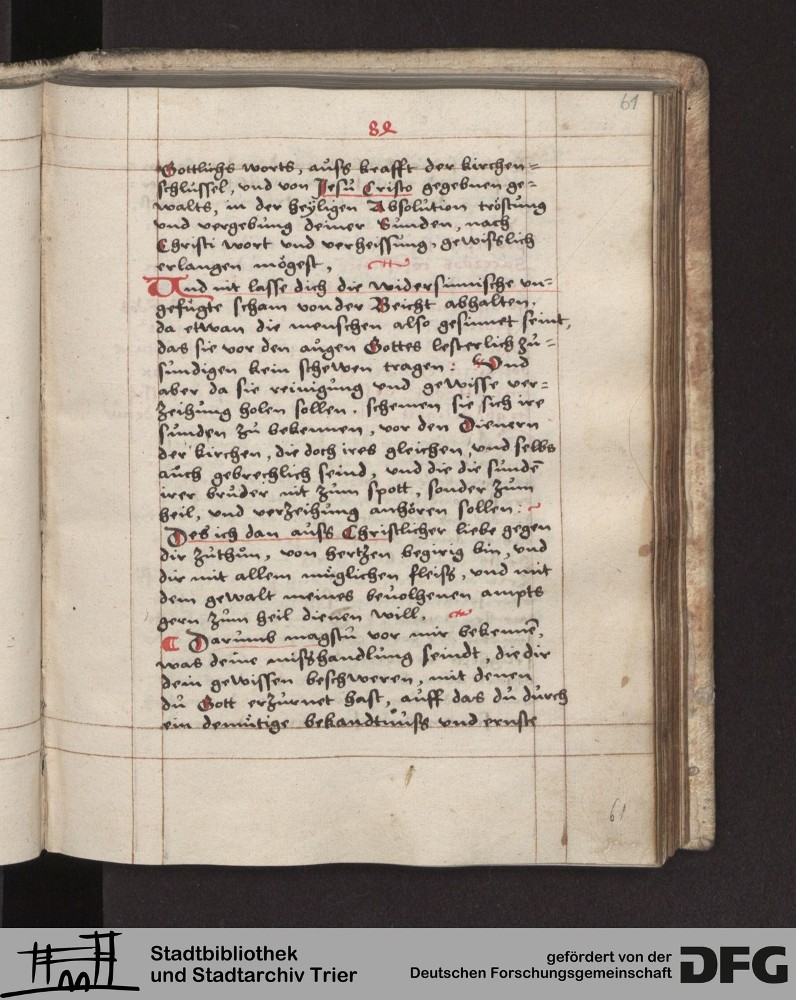 61
82
Gottlichs worts, aufs krafft der kirchen=
schlussel, vnd von Jesu Cristo gegebnen ge=
walts, in der heÿligen Absolution tröstung
vnd vergebung deiner Sunden, nach
Christi wort vnd verheissung, gewisslich
erlangen mögest,
Vnd nit lasse dich die widersinnische vn=
gefugte scham von der Beicht abhalten.
da etwan die menschen also gesinnet seint,
das sie vor den augen Gottes lesterlich zu=
sundigen kein schewen tragen: Vnd
aber da sie reinigung vnd gewisse ver=
zeihung holen sollen, schemen sie sich ire
sunden zu bekennen, vor den Dienern
der kirchen, die doch ires gleichen, vnd selbs
auch gebrechlich seind, vnd die die sundē
irer bruder nit zum spott, sonder zum
heil, vnd verzeihung anhören sollen:
Des ich dan aufs Christlicher liebe gegen
dir zuthun, von hertzen begirig bin, vnd
dir mit allem muglichen fleiss, vnd mit
dem gewalt meines beuolhenen ampts
gern zum heil dienen will.
Darumb magstu vor mir bekennē,
was deine misshandlung seindt, die dir
dein gewissen beschweren, mit denen
du Gott erzurnet hast, auff das du durch
ein demutige bekandtnuss vnd ernste
61
Stadtbibliothek
und Stadtarchiv Trier
gefördert von der
Deutschen Forschungsgemeinschaft
DFG